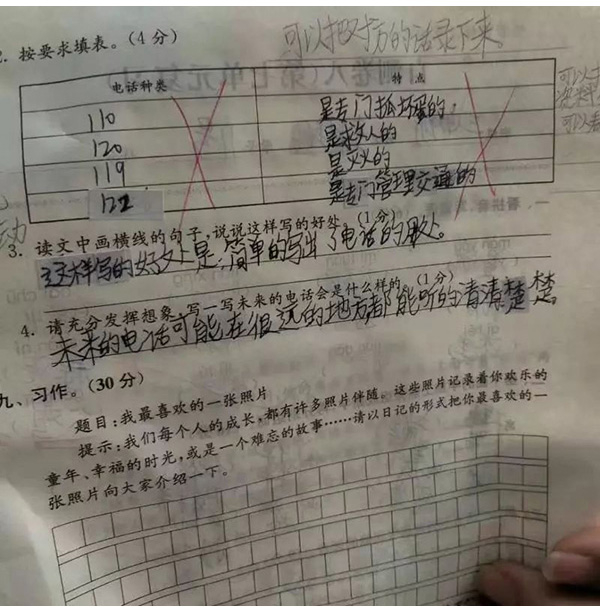 可以把对方的话录下来
2. 按要求填表。(4分)
电话种类 特点
110 是专门抓坏蛋的。
120 是救人的
119 是灭火的
122 是专门管理交通的
3. 读文中画横线的句子,说说这样写的好处。(1分)
这样写的好处是:简单的写出了电话的用处。
4. 请充分发挥想象,写一写未来的电话会是什么样的。(1分)
未来的电话可能在很远的地方都能听的清清楚楚
九、习作。(30分)
题目:我最喜欢的一张照片
提示:我们每个人的成长,都有许多照片伴随。这些照片记录着你欢乐的
童年、幸福的时光,或是一个难忘的故事……请以日记的形式把你最喜欢的一
张照片向大家介绍一下。